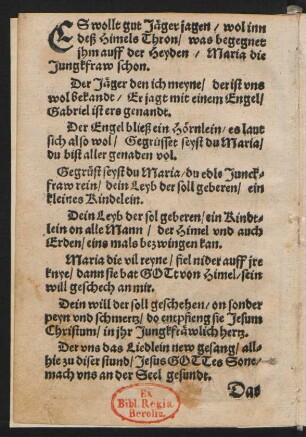 ES wollt gut Jäger jagen / wol inn
deß Himels Thron / was begegnet
jhm auff der Heyden / Maria die
Jungkfraw schon.
Der Jäger den ich meyne / der ist vns
wol bekandt / Er jagt mit einem Engel /
Gabriel ist ers genandt.
Der Engel bließ ein Hörnlein / es laut
sich also wol / Gegrüsset seyst du Maria /
du bist aller genaden vol.
Gegrüst seyst du Maria / du edle Junck-
fraw rein / dein Leyb der soll geberen / ein
kleines Kindelein.
Dein Leyb der sol geberen / ein Kindt-
lein on alle Mann / der Himel vnd auch
Erden / eins mals bezwingen kan.
Maria die vil reyne / fiel nider auff jre
knye / dann sie bat GOtt von Himel / sein
will geschech an mir.
Dein will der soll geschehen / on sonder
peyn vnd schmertz / do empfieng sie Jesum
Christum / in jhr Jungkfräwlich hertz.
Der vns das Liedlein new gesang / all-
hie zu diser stund / Jesus GOTTes Sone /
mach vns an der Seel gesundt.
Das
Ex
Bibl. Regia
Berolin.